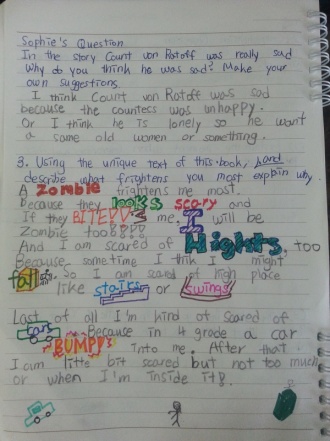 Sophie's Question
In the story Count von Rotoff was really sad
Why do you think he was sad? Make your
own suggestions.
I think Count von Rotoff was sad
because the countess was unhappy.
Or I think he is lonely so he want
a same old women or something.
3. Using the unique text of this book, and
describe what frightens you most explain why.
A Zombie frightens me most.
Because they looks scary and
If they BITE me. I will be
Zombie too
And I am scared of Hights, too
Because sometime I thik I might
fall. So I am scared of high place
like stairs or swings
Last of all I'm kind of scared of
cars Because in 4 grade a car
BUMPP into me. After that
I am litte bit scared but not too much
or when I'm inside it